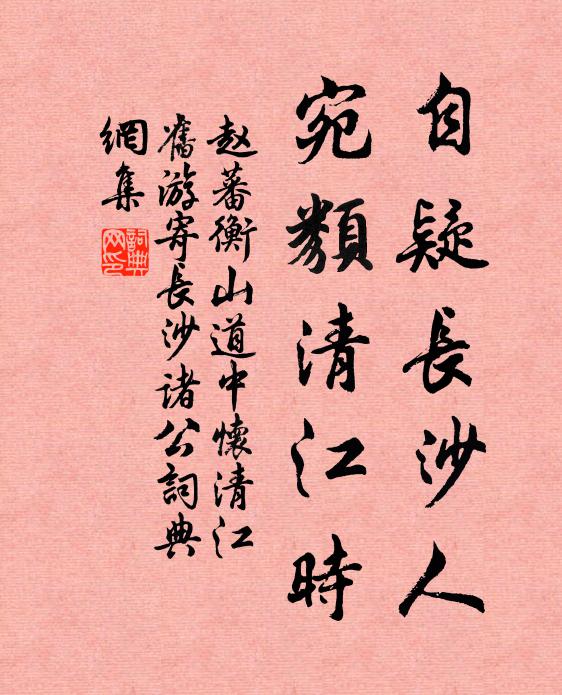 自疑長沙人
宛類清江時
赵蕃衡山道中懷清江
舊游寄長沙诸公詞典
網集
詞典網印